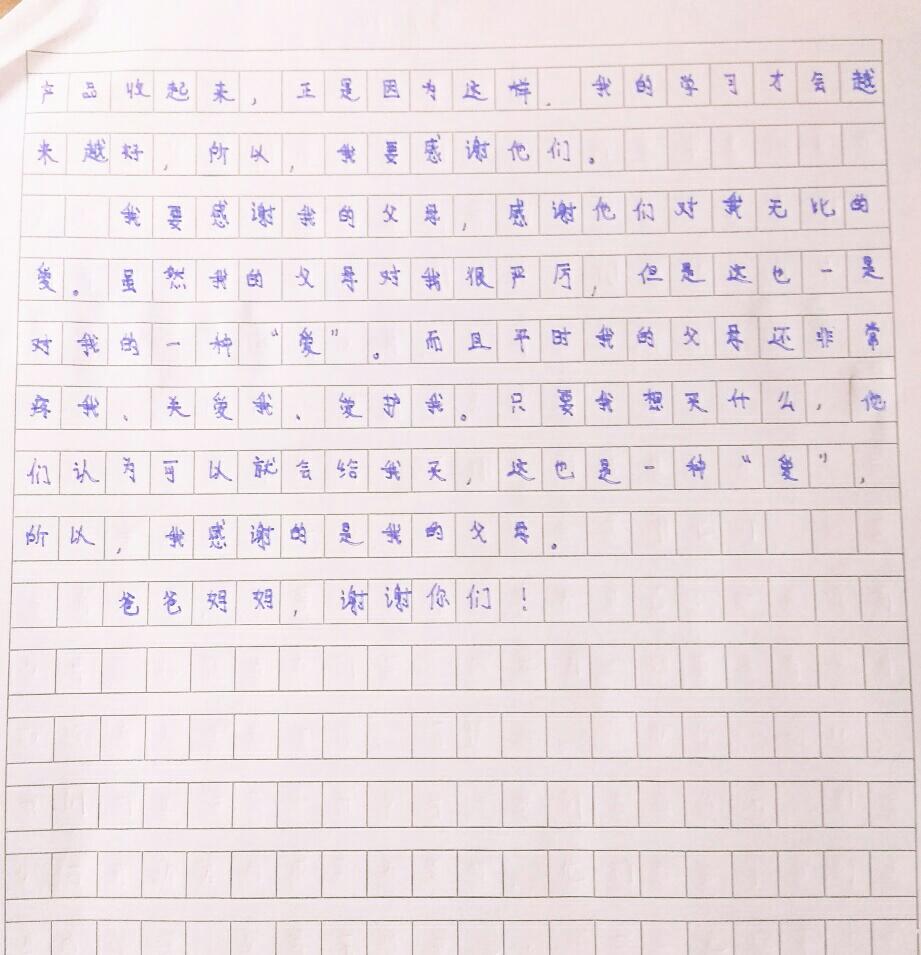 产品收起来，正是因为这样．我的学习才会越
来越好，所以，我要感谢他们。
我要感谢我的父母，感谢他们对我无比的
爱。虽然我的父母对我狠严厉，但是这也一是
对我的一种“爱”。而且平时我的父母还非常
疼我、关爱我、爱护我。只要我想买什么，他
们认为可以就会给我买，这也是一种“爱”，
所以，我感谢的是我的父母。
爸爸妈妈，谢谢你们！